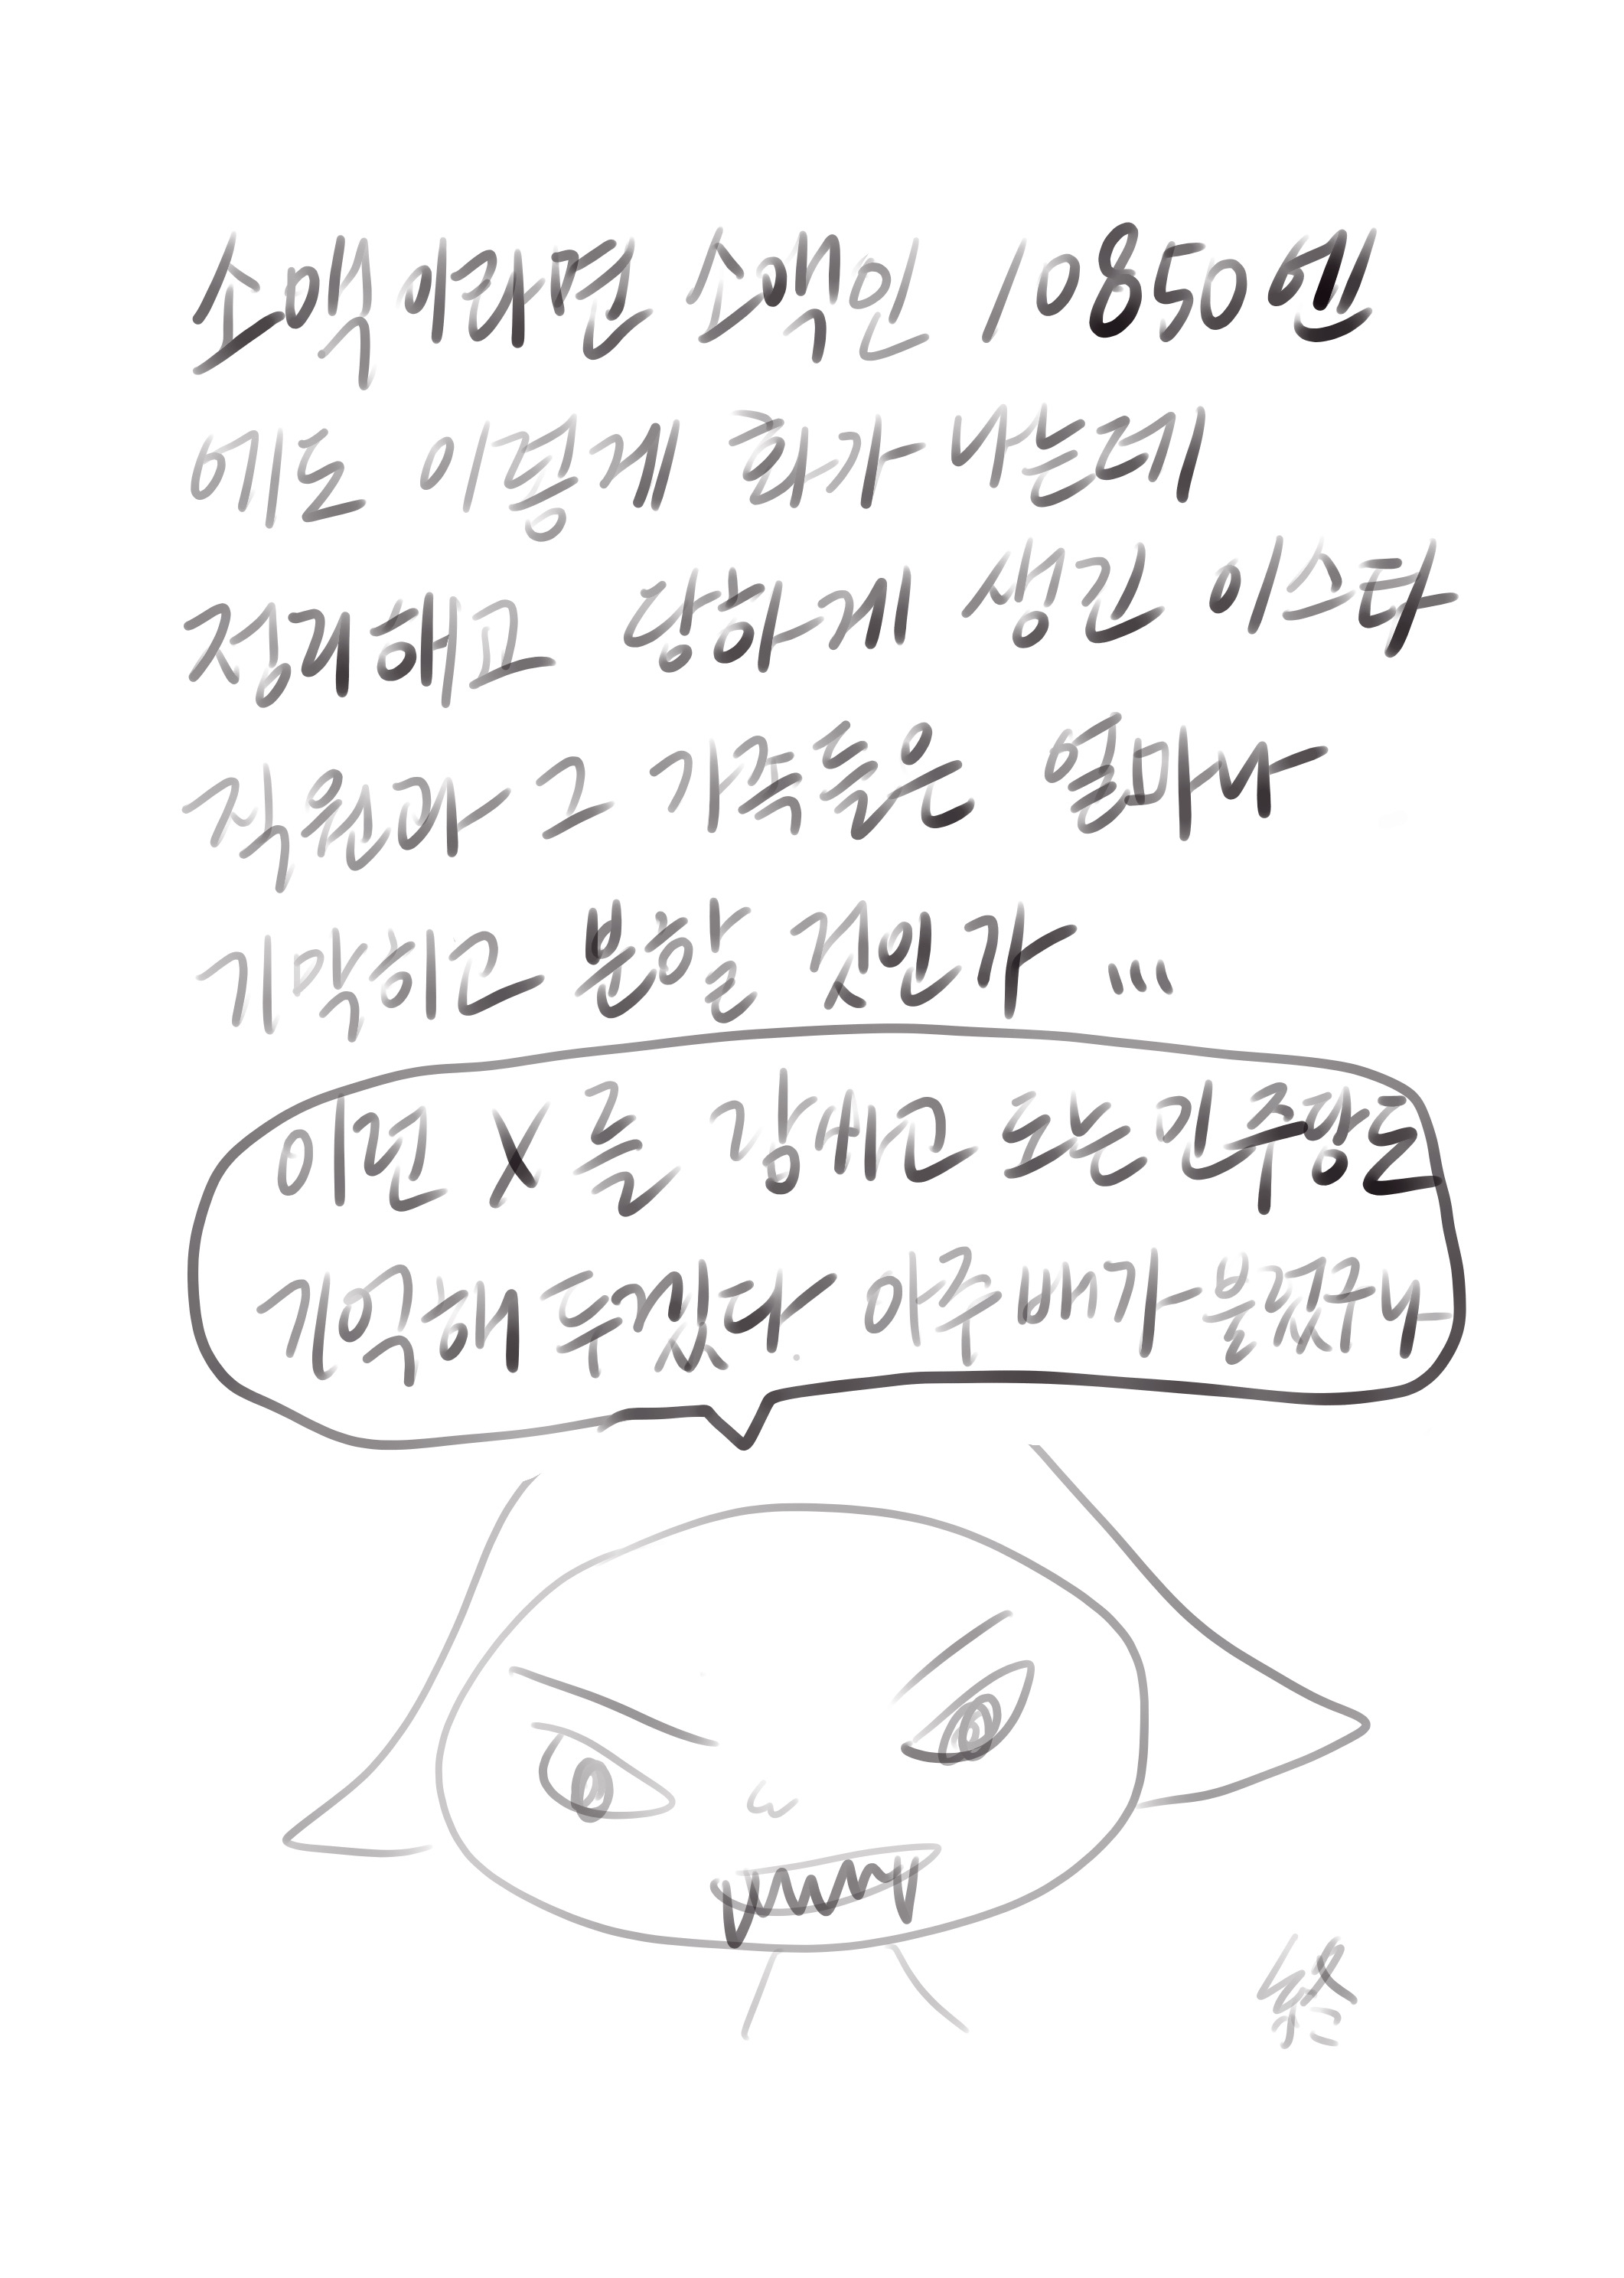 소액 어쩌면 소액인 10850원
에도 이렇게 화가 났는데
정리해고 당하게 생긴 이스타
직원과 그 가족들은 얼마나
기막히고 분할 것인가...
이런 X를 감싸고 도는 민주당은
기억해 두겠다. 아주 빠가 불쾌구나
終